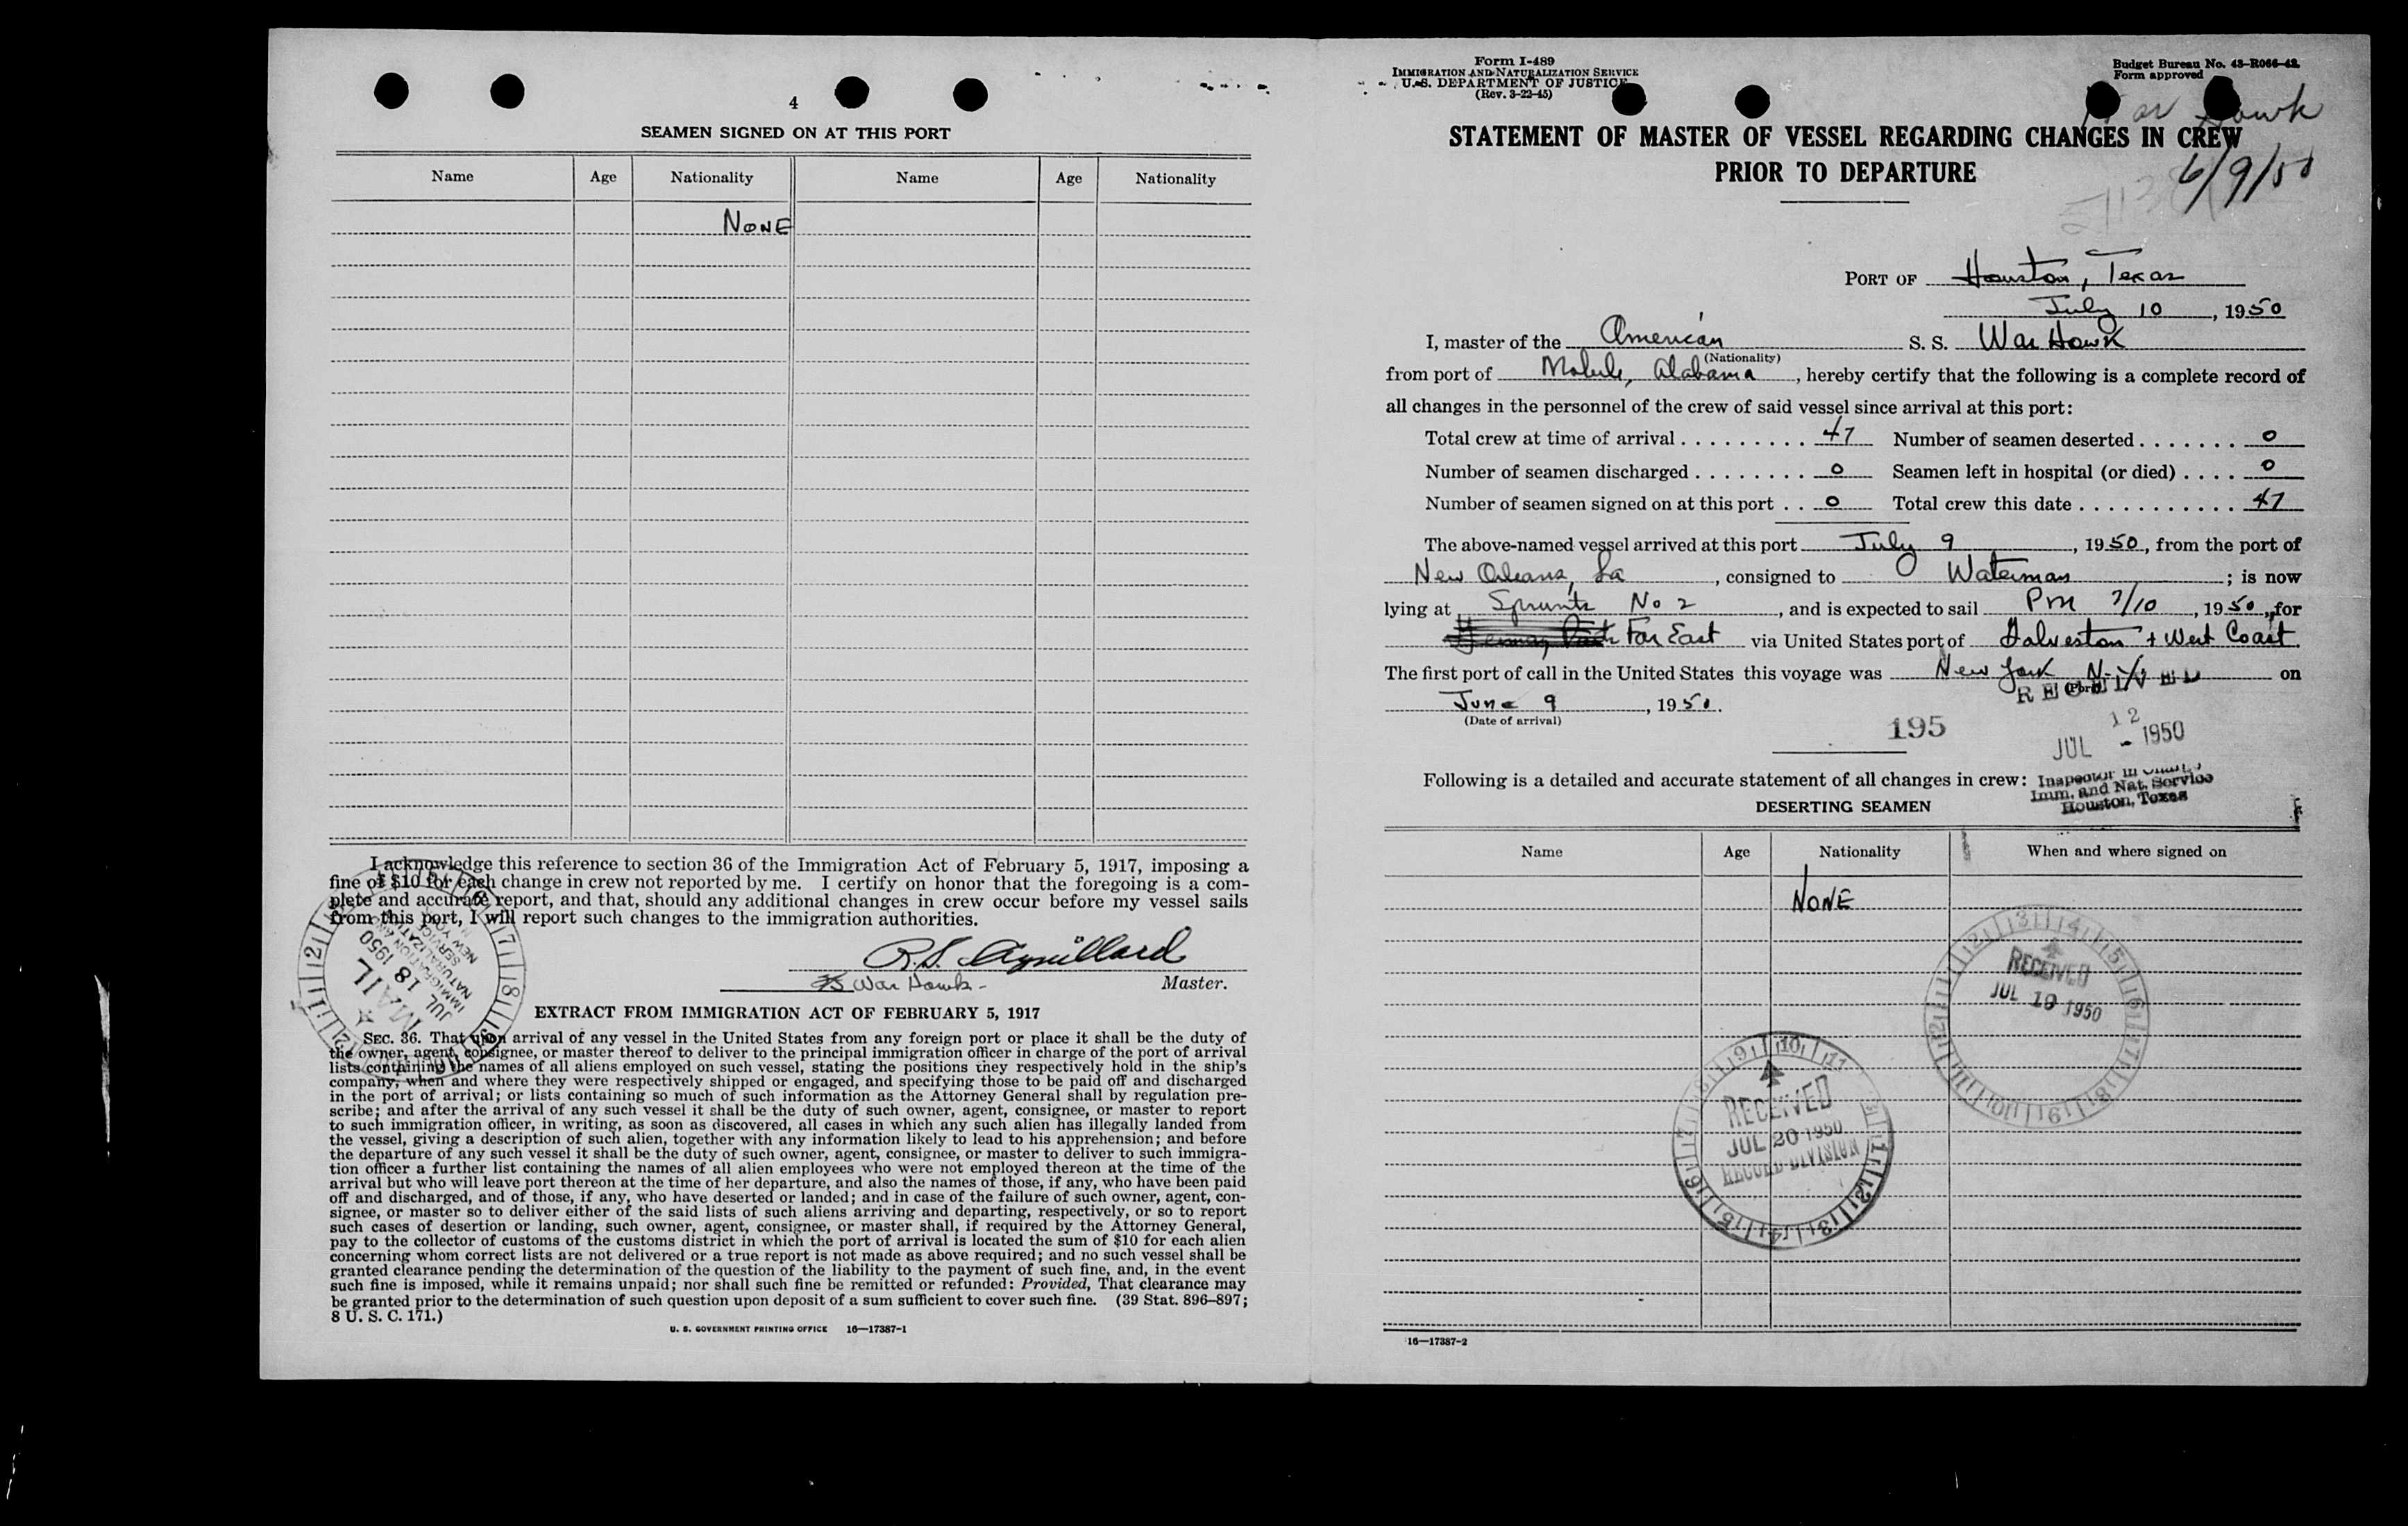 4
SEAMEN SIGNED ON AT THIS PORT
Name Age Nationality Name Age Nationality
NONE
I acknowledge this reference to section 36 of the Immigration Act of February 5, 1917, imposing a
fine of $10 for each change in crew not reported by me. I certify on honor that the foregoing is a com-
plete and accurate report, and that, should any additional changes in crew occur before my vessel sails
from this port, I will report such changes to the immigration authorities.
MAIL
JUL 18 1950
SS War Hawk - Master.
EXTRACT FROM IMMIGRATION ACT OF FEBRUARY 5, 1917
SEC. 36. That upon arrival of any vessel in the United States from any foreign port or place it shall be the duty of
the owner, agent, consignee, or master thereof to deliver to the principal immigration officer in charge of the port of arrival
lists containing the names of all aliens employed on such vessel, stating the positions they respectively hold in the ship's
company, when and where they were respectively shipped or engaged, and specifying those to be paid off and discharged
in the port of arrival; or lists containing so much of such information as the Attorney General shall by regulation pre-
scribe; and after the arrival of any such vessel it shall be the duty of such owner, agent, consignee, or master to report
to such immigration officer, in writing, as soon as discovered, all cases in which any such alien has illegally landed from
the vessel, giving a description of such alien, together with any information likely to lead to his apprehension; and before
the departure of any such vessel it shall be the duty of such owner, agent, consignee, or master to deliver to such immigra-
tion officer a further list containing the names of all alien employees who were not employed thereon at the time of the
arrival but who will leave port thereon at the time of her departure, and also the names of those, if any, who have been paid
off and discharged, and of those, if any, who have deserted or landed; and in case of the failure of such owner, agent, con-
signee, or master so to deliver either of the said lists of such aliens arriving and departing, respectively, or so to report
such cases of desertion or landing, such owner, agent, consignee, or master shall, if required by the Attorney General,
pay to the collector of customs of the customs district in which the port of arrival is located the sum of $10 for each alien
concerning whom correct lists are not delivered or a true report is not made as above required; and no such vessel shall be
granted clearance pending the determination of the question of the liability to the payment of such fine, and, in the event
such fine is imposed, while it remains unpaid; nor shall such fine be remitted or refunded: Provided, That clearance may
be granted prior to the determination of such question upon deposit of a sum sufficient to cover such fine. (39 Stat. 896–897;
8 U. S. C. 171.)
U. S. GOVERNMENT PRINTING OFFICE 16—17387-1
Form I-489
IMMIGRATION AND NATURALIZATION SERVICE
U. S. DEPARTMENT OF JUSTICE
(Rev. 3-22-45)
Budget Bureau No. 43-R066-42.
Form approved
War Hawk
STATEMENT OF MASTER OF VESSEL REGARDING CHANGES IN CREW
PRIOR TO DEPARTURE
6/9/50
PORT OF Houston, Texas
July 10, 1950
I, master of the American S. S. War Hawk
(Nationality)
from port of Mobile, Alabama, hereby certify that the following is a complete record of
all changes in the personnel of the crew of said vessel since arrival at this port:
Total crew at time of arrival . . . . . . . . . 47 Number of seamen deserted . . . . . . . 0
Number of seamen discharged . . . . . . . . 0 Seamen left in hospital (or died) . . . . 0
Number of seamen signed on at this port . . 0 Total crew this date . . . . . . . . . . . 47
The above-named vessel arrived at this port July 9, 1950, from the port of
New Orleans, La, consigned to Waterman; is now
lying at Sprunts No 2, and is expected to sail PM 7/10, 1950, for
Far East via United States port of Galveston + West Coast.
The first port of call in the United States this voyage was New York N.Y. on
(Port)
June 9, 1950.
(Date of arrival)
RECEIVED
195
JUL 12 - 1950
Following is a detailed and accurate statement of all changes in crew:
Inspector in Charge
Imm. and Nat. Service
Houston, Texas
DESERTING SEAMEN
Name Age Nationality When and where signed on
NONE
RECEIVED
JUL 19 1950
RECEIVED
JUL 20 1950
RECORD DIVISION
16—17387-2